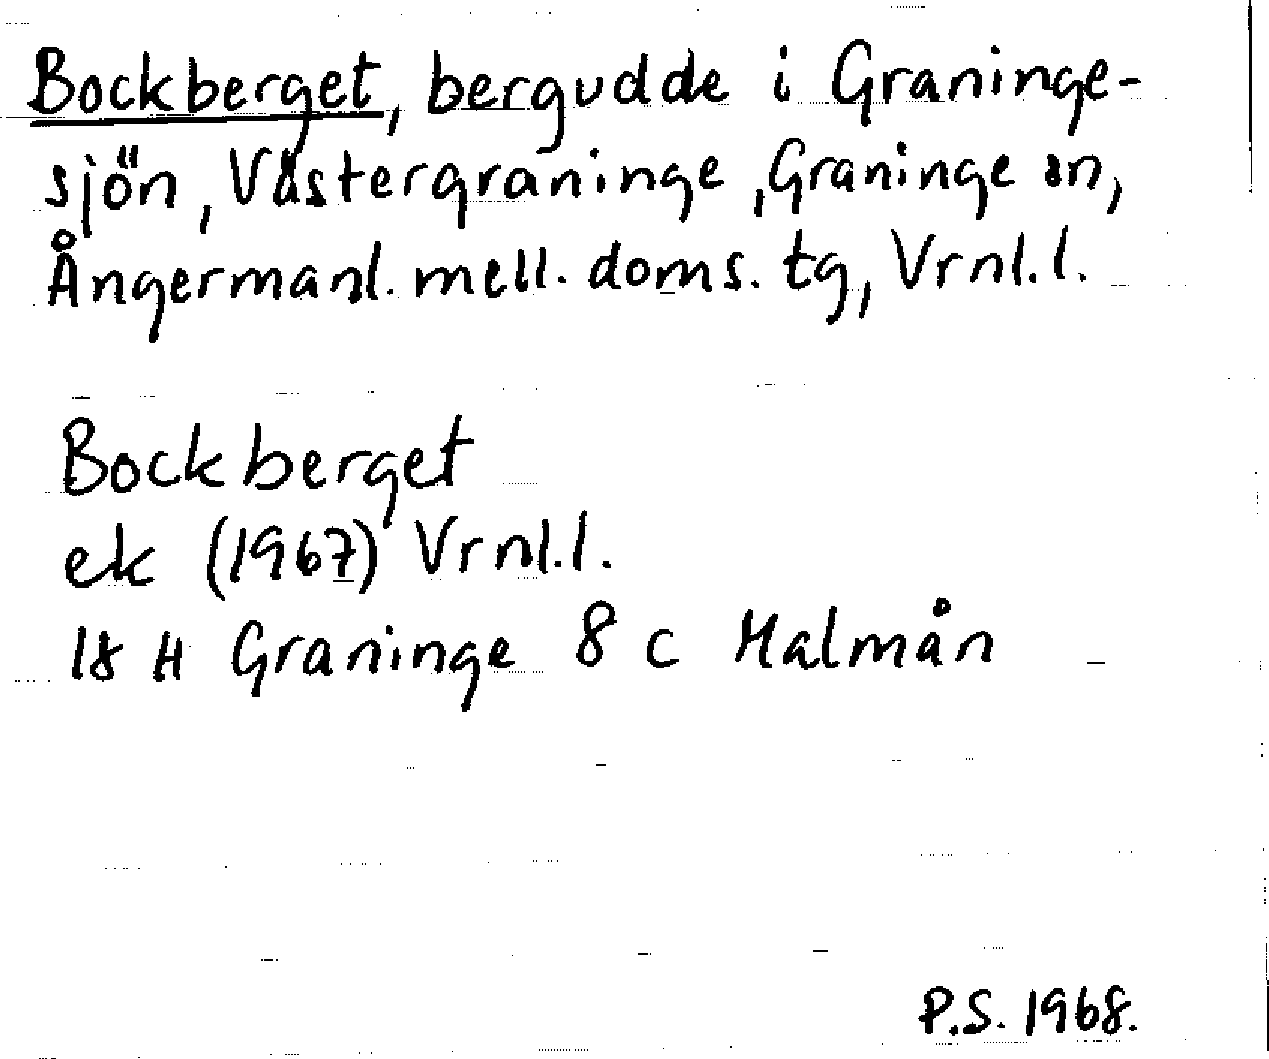 Bockberget, bergudde i Graninge-
sjön, Västergraninge, Graninge sn,
Ångermanl. mell. doms. tg, Vrnl.l.
Bockberget
ek (1967) Vrnl.l.
18 H Graninge 8 c Malmån
P.S. 1968.